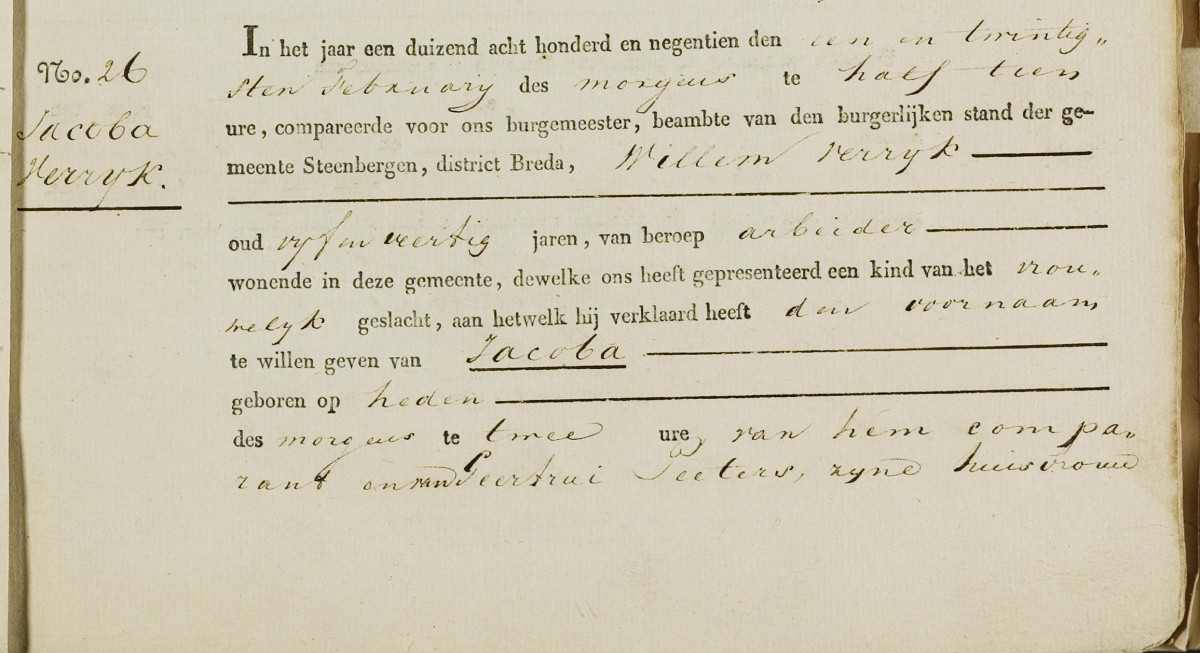 No. 26
Jacoba
Verryk.
In het jaar een duizend acht honderd en negentien den een en twintig-
sten February des morgens te half tien
ure, compareerde voor ons burgemeester, beambte van den burgerlijken stand der ge-
meente Steenbergen, district Breda, Willem Verryk
oud vyf en veertig jaren, van beroep arbeider
wonende in deze gemeente, dewelke ons heeft gepresenteerd een kind van het vrou-
welyk geslacht, aan hetwelk hij verklaard heeft den voornaam
te willen geven van Jacoba
geboren op heden
des morgens te twee ure, van hem compa-
rant en van Geertrui Peeters, zyne huisvrouw